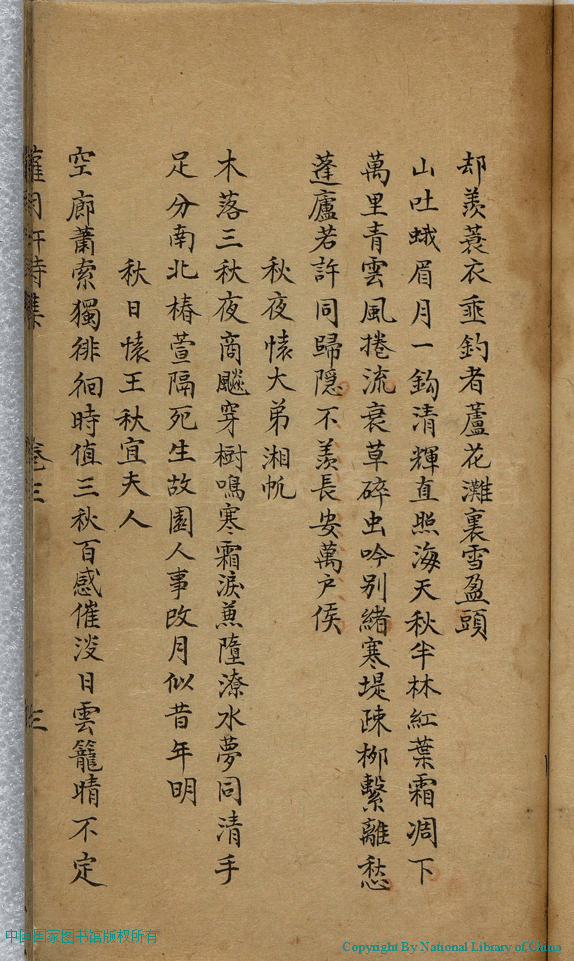 却羨蓑衣垂釣者蘆花灘裏雪盈頭
山吐蛾眉月一鈎清輝直照海天秋半林紅葉霜凋下
萬里青雲風捲流衰草碎虫吟别緒寒堤疎栁繫離愁
蓬廬若許同歸隱不羨長安萬户侯
秋夜懐大弟湘帆
木落三秋夜商飈穿樹鳴寒霜淚兼墮潦水夢同清手
足分南北椿萱隔死生故園人事改月似昔年明
秋日懐王秋宜夫人
空廊蕭索獨徘徊時值三秋百感催淡日雲籠晴不定
詩集 卷三 三
中国国家图书馆版权所有
Copyright By National Library of China